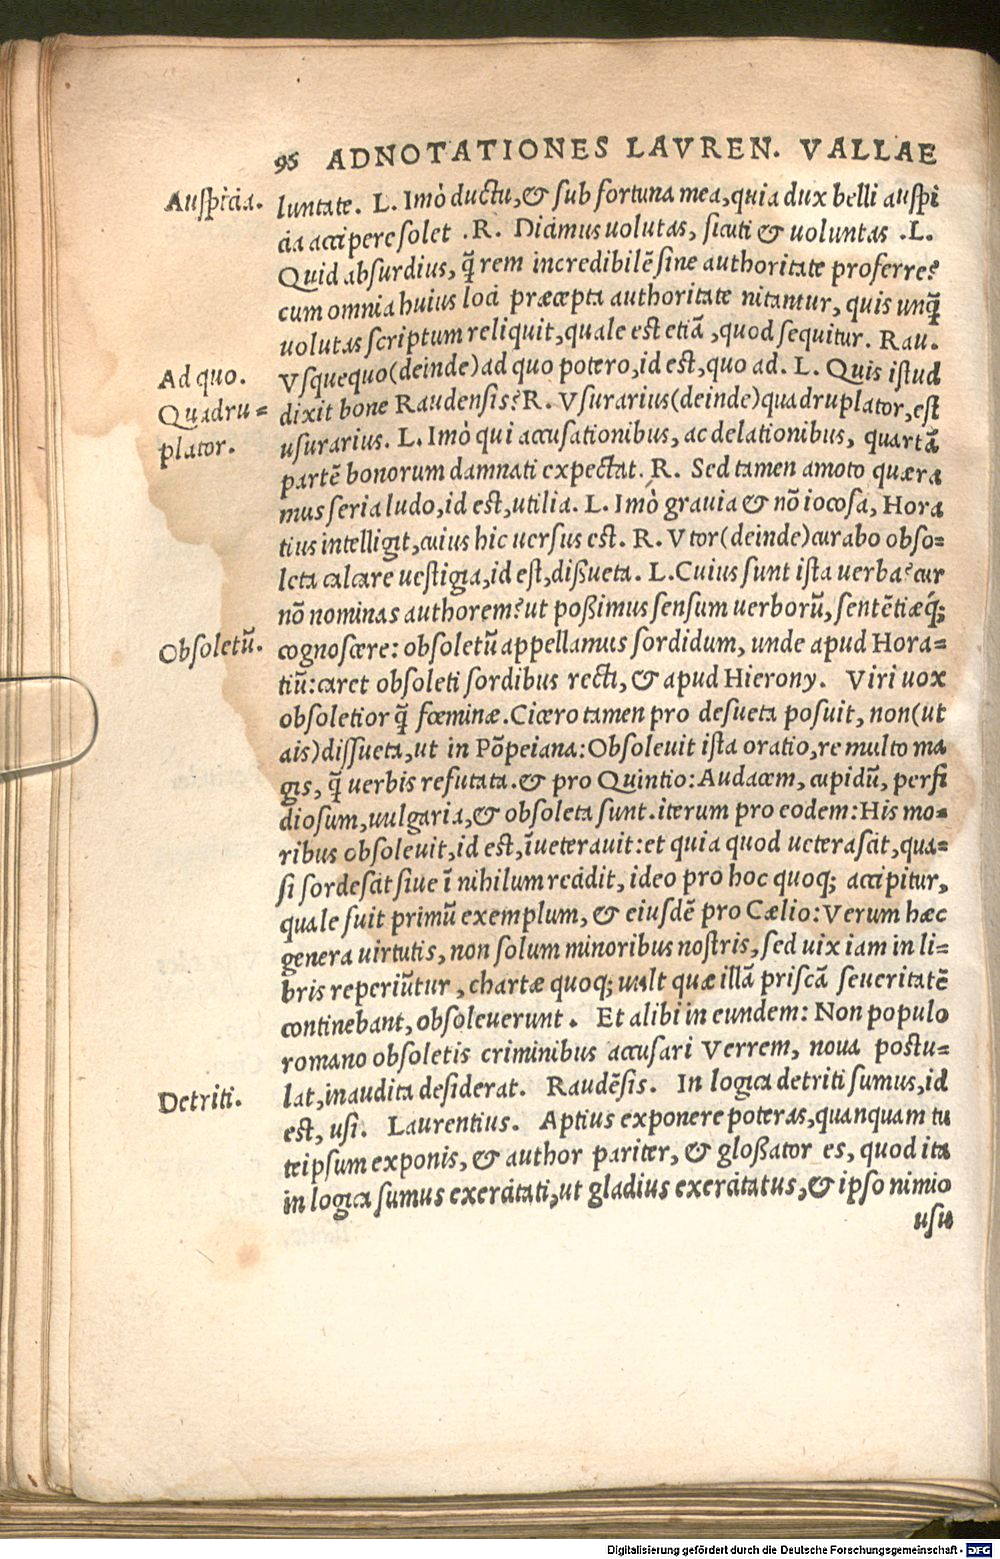 95 ADNOTATIONES LAVREN. VALLAE
Auspicia.
luntate. L. Imò ductu, & sub fortuna mea, quia dux belli auspi
cia accipere solet .R. Dicimus uolutas, sicuti & uoluntas .L.
Quid absurdius, q̃ rem incredibilẽ sine authoritate proferre?
cum omnia huius loci præcepta authoritate nitantur, quis unq̃
uolutas scriptum reliquit, quale est etiã, quod sequitur. Rau.
Ad quo.
Vsquequo(deinde)ad quo potero, id est, quo ad. L. Quis istud
Quadru=
dixit bone Raudensis? R. Vsurarius(deinde)quadruplator, est
plator.
usurarius. L. Imò qui accusationibus, ac delationibus, quartã
partẽ bonorum damnati expectat. R. Sed tamen amoto quæra
mus seria ludo, id est, utilia. L. Imò grauia & nõ iocosa, Hora
tius intelligit, cuius hic uersus est. R. Vtor(deinde)curabo obso=
leta calcare uestigia, id est, dißueta. L. Cuius sunt ista uerba? cur
nõ nominas authorem? ut poßimus sensum uerborũ, sentẽtiæq́;
Obsoletũ.
cognoscere: obsoletũ appellamus sordidum, unde apud Hora=
tiũ: caret obsoleti sordibus recti, & apud Hierony. Viri uox
obsoletior q̃ fœminæ. Cicero tamen pro desueta posuit, non(ut
ais)dissueta, ut in Põpeiana: Obsoleuit ista oratio, re multo ma
gis, q̃ uerbis refutata. & pro Quintio: Audacem, cupidũ, perfi
diosum, uulgaria, & obsoleta sunt. iterum pro eodem: His mo=
ribus obsoleuit, id est, ĩueterauit: et quia quod ueterascit, qua=
si sordescit siue ĩ nihilum recidit, ideo pro hoc quoq; accipitur,
quale fuit primũ exemplum, & eiusdẽ pro Cælio: Verum hæc
genera uirtutis, non solum minoribus nostris, sed uix iam in li=
bris reperiũtur, chartæ quoq; ualt quæ illã priscã seueritatẽ
continebant, obsoleuerunt. Et alibi in eundem: Non populo
romano obsoletis criminibus accusari Verrem, noua postu=
Detriti.
lat, inaudita desiderat. Raudẽsis. In logica detriti sumus, id
est, usi. Laurentius. Aptius exponere poteras, quanquam tu
teipsum exponis, & author pariter, & gloßator es, quod ita
in logica sumus exercitati, ut gladius exercitatus, & ipso nimio
usu
Digitalisierung gefördert durch die Deutsche Forschungsgemeinschaft - DFG